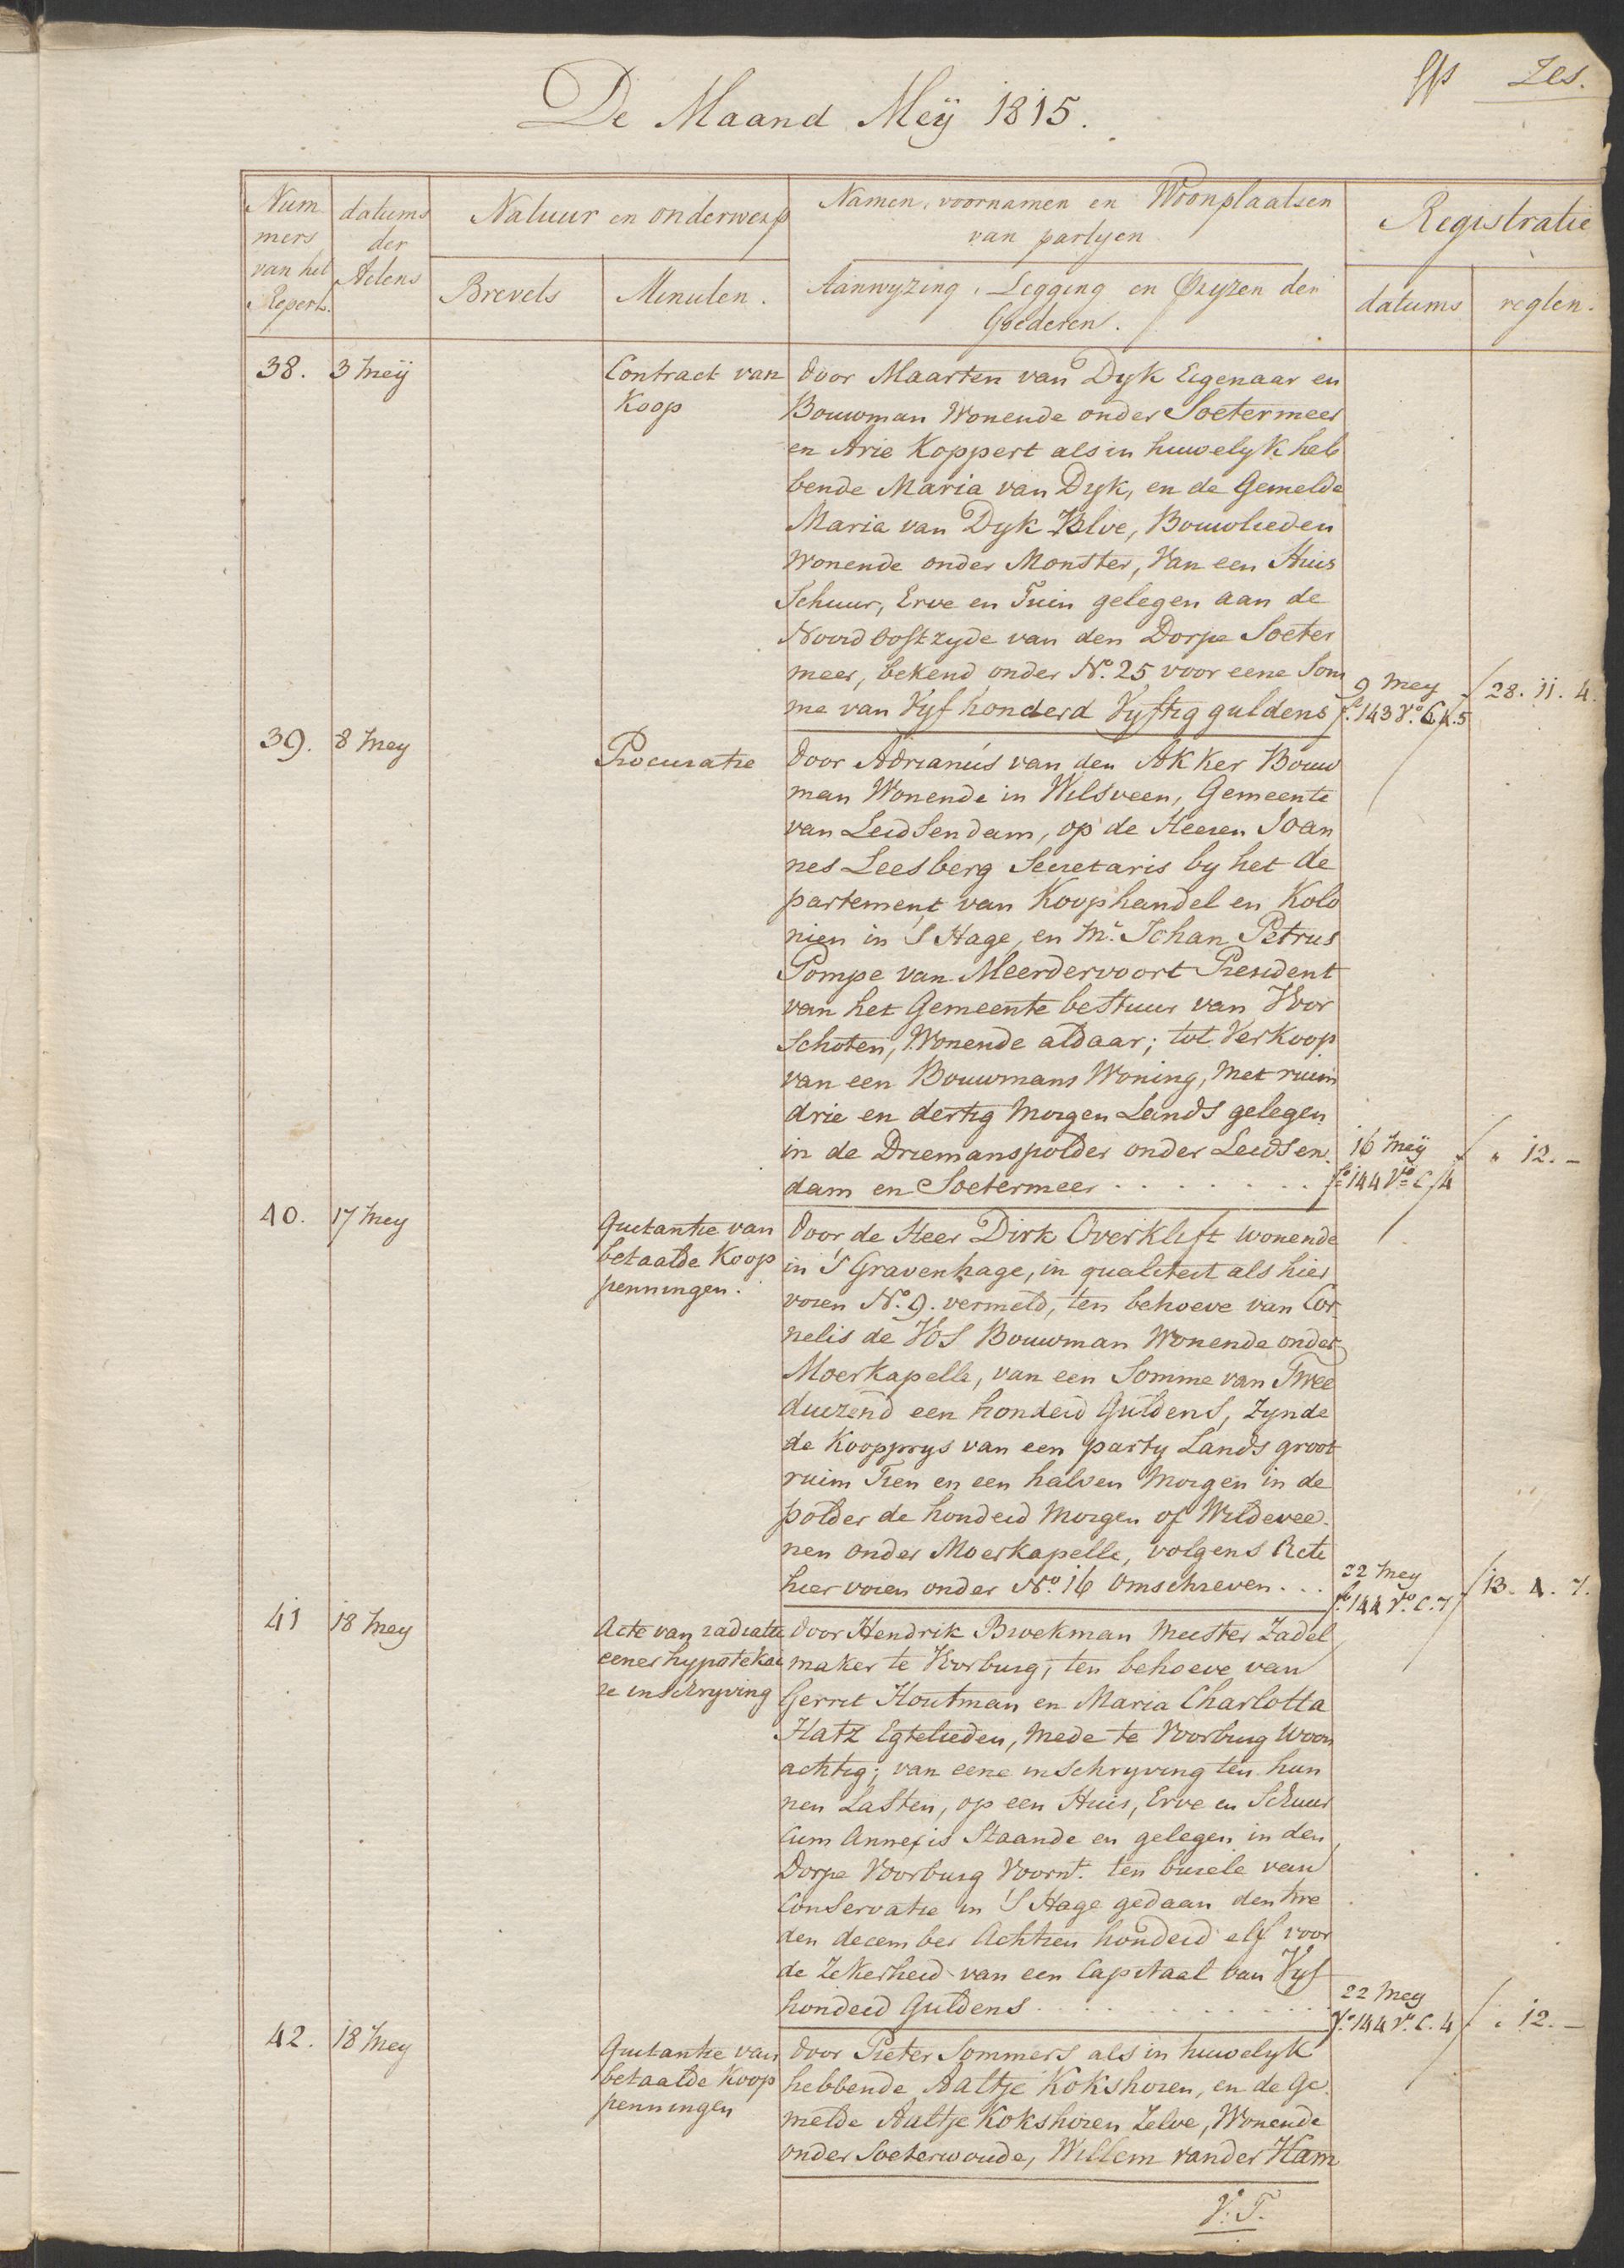 Zes.
De Maand Meÿ 1815.
Num
mers
van het
Repert.
datums
der
Actens
Natuur en onderwerp
Brevets
Minuten.
Namen, voornamen en Woonplaatsen
van partyen
Aanwyzing, Legging en Pryzen der
Goederen.
Registratie
datums
regten.
38.
3 Meÿ
Contract van
Koop
door Maarten van Dyk Eigenaar en
Bouwman Wonende onder Soetermeer
en Arie Koppert als in huwelyk heb
bende Maria van Dyk, en de Gemelde
Maria van Dyk Zelve, Bouwlieden
Wonende onder Monster, Van een Huis
Schuur, Erve en Tuin gelegen aan de
Noord Oostzyde van den Dorpe Soeter
meer, bekend onder No. 25 voor eene Som
me van Vyf honderd Vyftig guldens
9 Mey
fo. 143 Vo. C k.5
28. 11. 4.
39.
8 Mey
Procuratie
door Adrianus van den Akker Bouw
man Wonende in Wilsveen, Gemeente
van Leidsendam, op de Heeren Joan
nes Leesberg Secretaris by het de
partement van Koophandel en Kolo
nien in 'S Hage, en Mr. Johan Petrus
Pompe van Meerdervoort President
van het Gemeente bestuur van Voor
Schoten, Wonende aldaar; tot Verkoop
van een Bouwmans Woning, Met ruim
drie en dertig Morgen Lands gelegen
in de Driemanspolder onder Leidsen
dam en Soetermeer . . . . . . .
16 Meÿ
fo 144 Vo C 4
" 12. –
40.
17 Mey
Quitantie van
betaalde Koop
penningen.
Door de Heer Dirk Overklift wonende
in 'S Gravenhage, in qualiteit als hier
voren No. 9. vermeld, ten behoeve van Cor
nelis de VoS Bouwman Wonende onder
Moerkapelle, van een Somme van Twee
duizend een honderd Guldens, Zynde
de Koopprys van een party Lands groot
ruim Tien en een halven Morgen in de
polder de honderd Morgen of Wildevee
nen onder Moerkapelle, volgens Acte
hier voren onder No. 16 omschreven . . .
22 Mey
fo. 144 Vo. C. 7
13. 4. 7.
41
18 Mey
Acte van radiatie
eener hypotekai
re inschryving
door Hendrik Broekman Meester Zadel
maker te Voorburg, ten behoeve van
Gerret Houtman en Maria Charlotta
Hatz Egtelieden, Mede te Voorburg Woon
achtig; van eene inschryving ten hun
nen Lasten, op een Huis, Erve en Schuur
Cum Annexis Staande en gelegen in den
Dorpe Voorburg Voornt. ten burele van
Conservatie in 'S Hage gedaan den twe
den december Achtien honderd elf voor
de Zekerheid van een Capitaal van Vyf
honderd Guldens . . . . . . . . .
22 Mey
fo. 144 Vo. C. 4
" 12. –
42.
18 Mey
Quitantie van
betaalde Koop
penningen
door Pieter Sommers als in huwelyk
hebbende Aaltje Kokshoren, en de Ge
melde Aaltje Kokshoren Zelve, Wonende
onder Soeterwoude, Willem vander Ham
V. T.